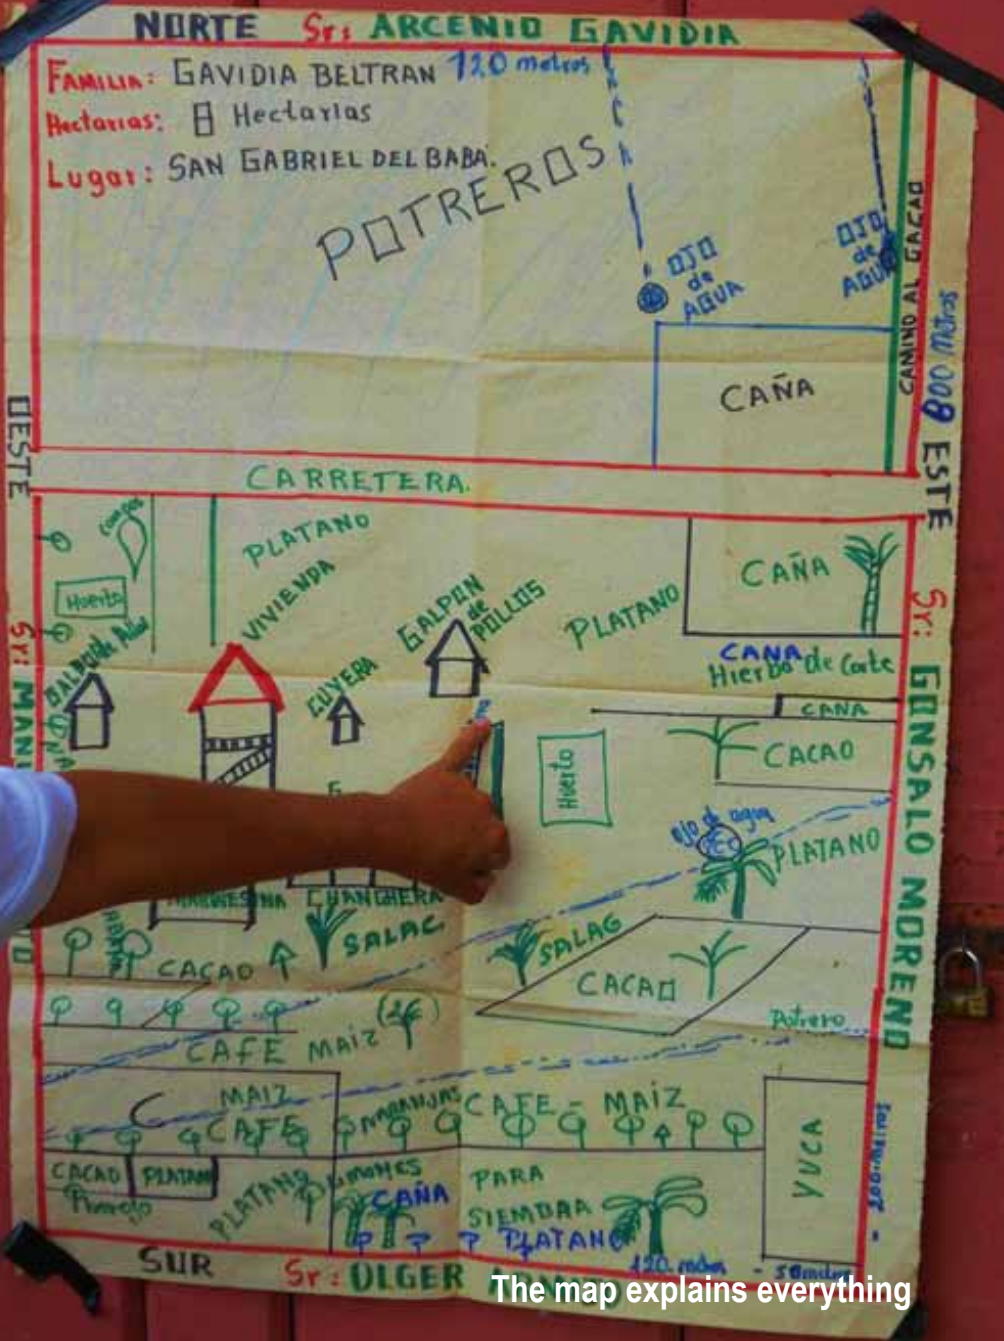 NORTE Sr: ARCENIO GAVIDIA
FAMILIA: GAVIDIA BELTRAN 120 metros
Hectarias: 8 Hectarias
Lugar: SAN GABRIEL DEL BABA.
POTREROS
OJO
de
AGUA
OJO
de
AGUA
CAMINO AL CACAO
800 metros
CAÑA
OESTE
ESTE
CARRETERA.
Huerto
PLATANO
VIVIENDA
GALPON
de
POLLOS
PLATANO
CAÑA
CANA
Hierba de Corte
CUYERA
CANA
CACAO
Huerto
Sr: GONSALO MORENO
Sr:
ojo de agua
PLATANO
CHANCHERA
SALAC
SALAG
CACAO
CACAO
Potrero
CAFE MAIZ
MAIZ
CAFE
NARANJAS
CAFE - MAIZ
YUCA
CACAO
PLATAN
PLATANO
LIMONES
CAÑA
PARA
SIEMBRA
PLATANO
SUR
Sr: OLGER
The map explains everything